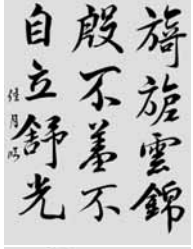 旖旎雲錦
殷不羞不
自立舒光
佳月